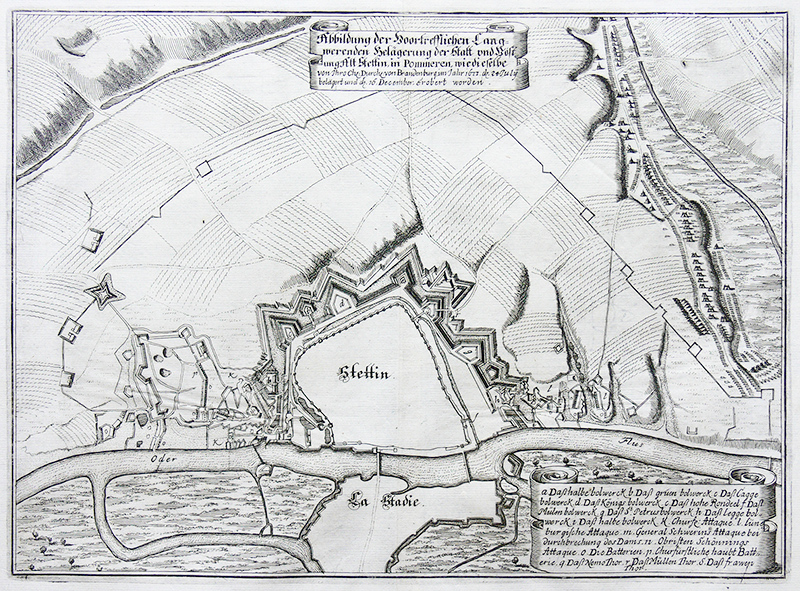 Abbildung der Voortrefflichen Lang
werenden Belägerung der Statt und Vöst
ung Alt Stettin, in Pommeren, wie dieselbe
von Ihro Ch. Durchl. von Brandenburg im Jahr 1677. d. 24 July
belägert und d. 16 December. erobert worden.
Stettin
K
Oder
Flus
La Stadie
a Daß halbe bolwerck b. Daß grüen bolwerck c Daß Cagge
bolwerck d. Daß Königs bolwerck e Daß hohe Rondeel f Daß
Mülen bolwerck g Daß St Petrus bolwerck h Daß legge bol
werck i Daß halbe bolwerck K Churfr. Attaque l. Lün
burgische Attaque m. General Schwerins Attaque bei
durchbrechung des Dams. n. Obristen Schönnings
Attaque o Die Batterien. p. Churfürstliche haubt Batt
erie. q Daß Neme Thor. r Daß Müllen Thor. s. Daß frawen
Thor.